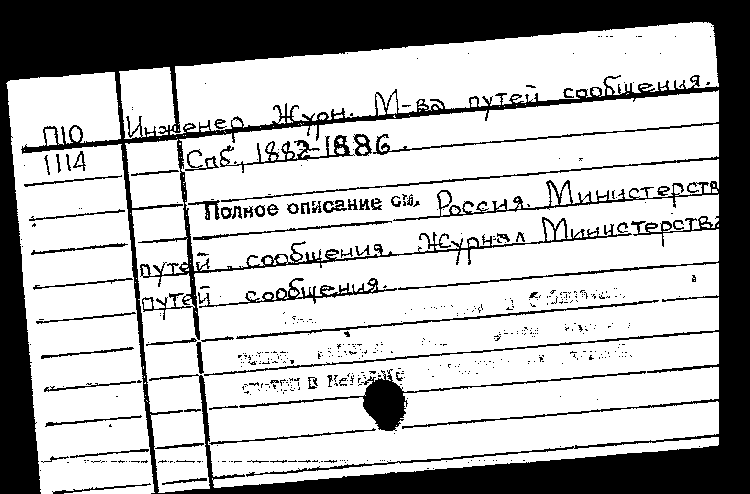 П10 Инженер. Журн. М-ва путей сообщения.
1114 Спб., 1882-1886.
Полное описание см. Россия. Министерств
путей сообщения. Журнал Министерства
путей сообщения.
в библиотеке,
смотри в каталоге